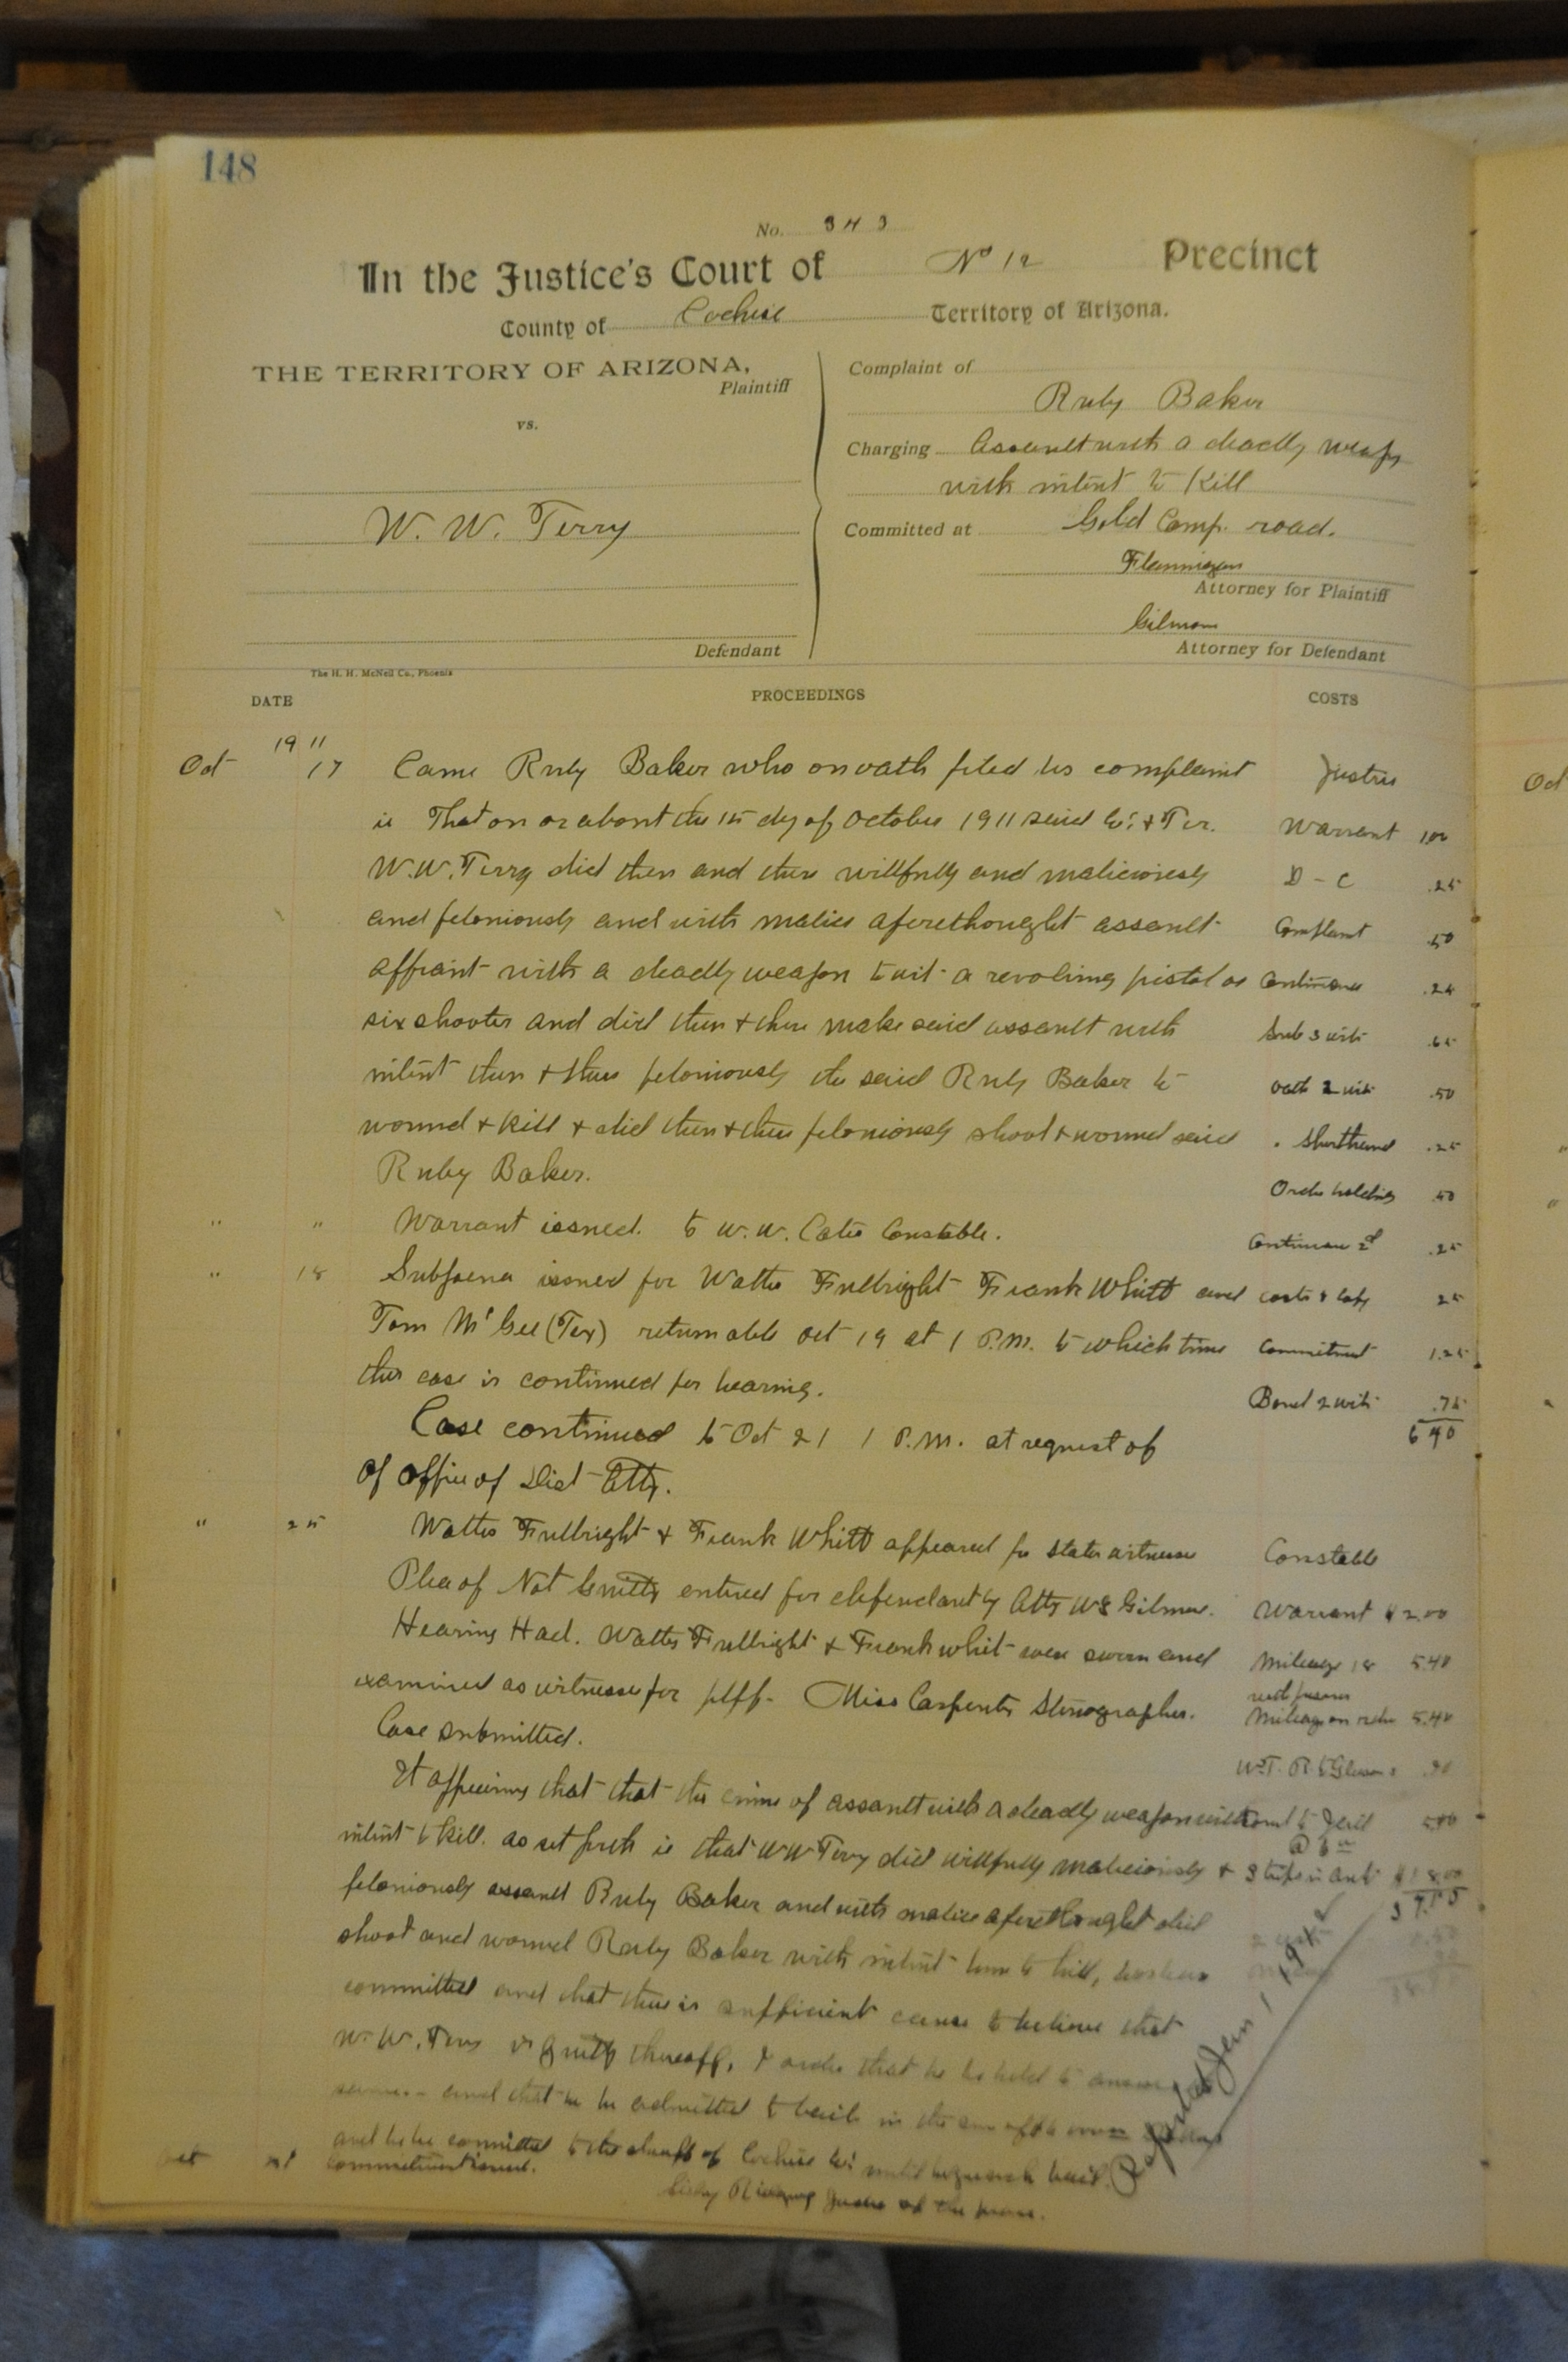 148
No. 343
In the Justice's Court of No 12 Precinct
County of Cochise Territory of Arizona.
THE TERRITORY OF ARIZONA,
Plaintiff
vs.
W. W. Terry
Defendant
Complaint of
Ruby Baker
Charging Assault with a deadly weapon
with intent to Kill
Committed at Gold Camp road.
Flannigan
Attorney for Plaintiff
Gilmore
Attorney for Defendant
The H. H. McNeil Co., Phoenix
DATE PROCEEDINGS COSTS
1911
Oct 17 Came Ruby Baker who on oath filed his complaint Justice
ie That on or about the 15 day of October 1911 said Co. & Ter. Warrant 1.00
W. W. Terry did then and there willfully and maliciously D - C .25
and feloniously and with malice aforethought assault Complaint .50
affiant with a deadly weapon to wit a revolving pistol or Continuance
six shooter and did then & there make said assault with Sub 3 wit
intent then & there feloniously the said Ruby Baker to oath 2 wit .50
wound & kill & did then & there feloniously shoot & wound said " Shorthand .25
Ruby Baker. Order holding .50
" " Warrant issued. to W. W. Constable. Continuan 2d .25
" 18 Subpoena issued for Walter Fullbright Frank Whitt and costs & 25
Tom McGee (Tex) returnable Oct 19 at 1 P.M. to which time Commitment 1.25
this case is continued for hearing. Bond 2 wit .75
Case continued to Oct 21 1 P.M. at request of 690
of office of Dist Atty.
" 25 Walter Fullbright & Frank Whitt appeared for state witness Constable
Plea of Not Guilty entered for defendant by Atty W S Gilmore. Warrant $2.00
Hearing Had. Walter Fullbright & Frank whit were sworn and Mileage 18 5.40
examined as witnesses for plff. Miss Carpenter Stenographer. Mileage on 5.40
Case submitted.
It appearing that that the crime of assault with a deadly weapon with to Jail
intent to kill. as set forth ie that W W Terry did willfully maliciously & 3 trips in auto
feloniously assault Ruby Baker and with malice aforethought did
shoot and wound Ruby Baker with intent him to kill, has been
committed and that there is sufficient cause to believe that
W. W. Terry is guilty thereoff, I order that he be held to answer
and that he be admitted to bail in the sum of
and he be committed to the sheriff of Cochise Co. until he give such bail.
Oct Commitment issued.
Justice of the peace.
Reported Jan 1